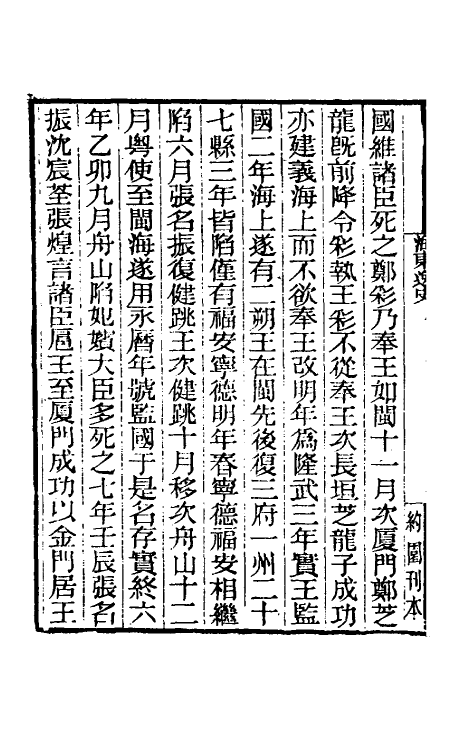 國維諸臣死之鄭彩乃奉王如閩十一月次廈門鄭芝
龍旣前降令彩執王彩不從奉王次長垣芝龍子成功
亦建義海上而不欲奉王改明年爲隆武三年實王監
國二年海上遂有二朔王在閩先後復三府一州二十
七縣三年皆陷僅有福安寧德明年春寧德福安相繼
陷六月張名振復健跳王次健跳十月移次舟山十二
月粵使至閩海遂用永曆年號監國于是名存實終六
年乙卯九月舟山陷妃嬪大臣多死之七年壬辰張名
振沈宸荃張煌言諸臣扈王至厦門成功以金門居王
海東逸史
約園刊本